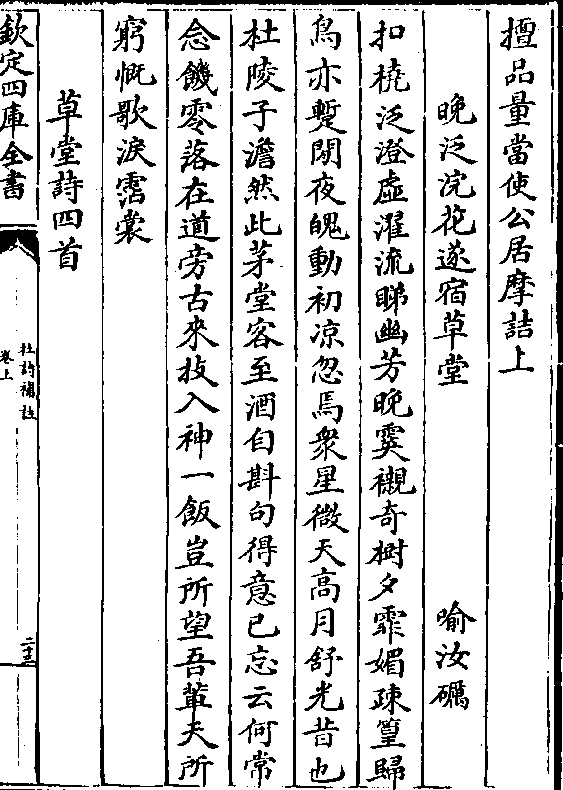 擅品量當使公居摩詰上
晚泛浣花遂宿草堂 喻汝礪
扣橈泛澄虛濯流睇幽芳晚霙襯奇樹夕霏媚疎篁歸
鳥亦蹔閑夜魄動初凉忽焉衆星微天高月舒光昔也
杜陵子澹然此茅堂客至酒自斟句得意已忘云何常
念饑零落在道旁古來技入神一飯豈所望吾輩天所
窮慨歌淚霑裳
草堂詩四首
欽定四庫全書
杜詩補註
卷上
二十三